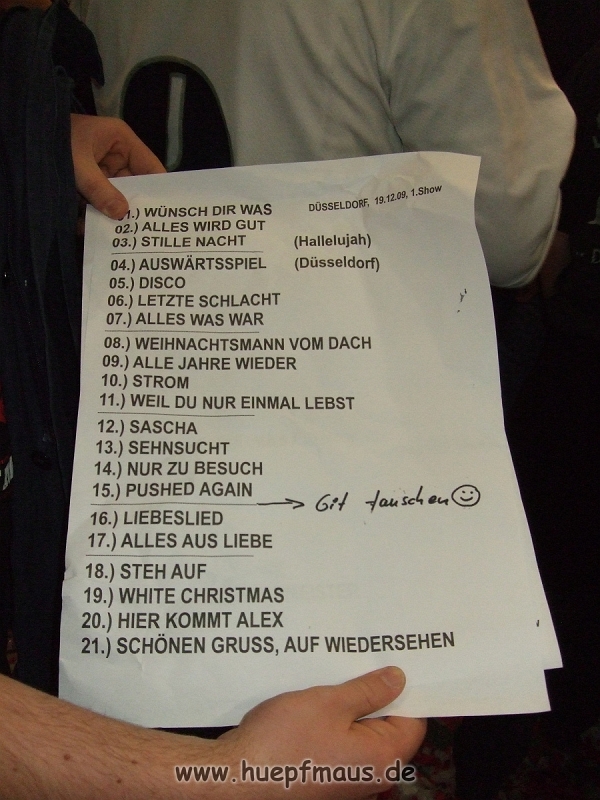 DÜSSELDORF, 19.12.09, 1.Show
01.) WÜNSCH DIR WAS
02.) ALLES WIRD GUT
03.) STILLE NACHT (Hallelujah)
04.) AUSWÄRTSSPIEL (Düsseldorf)
05.) DISCO
06.) LETZTE SCHLACHT
07.) ALLES WAS WAR
08.) WEIHNACHTSMANN VOM DACH
09.) ALLE JAHRE WIEDER
10.) STROM
11.) WEIL DU NUR EINMAL LEBST
12.) SASCHA
13.) SEHNSUCHT
14.) NUR ZU BESUCH
15.) PUSHED AGAIN
→ Git tauschen ☺
16.) LIEBESLIED
17.) ALLES AUS LIEBE
18.) STEH AUF
19.) WHITE CHRISTMAS
20.) HIER KOMMT ALEX
21.) SCHÖNEN GRUSS, AUF WIEDERSEHEN
www.huepfmaus.de